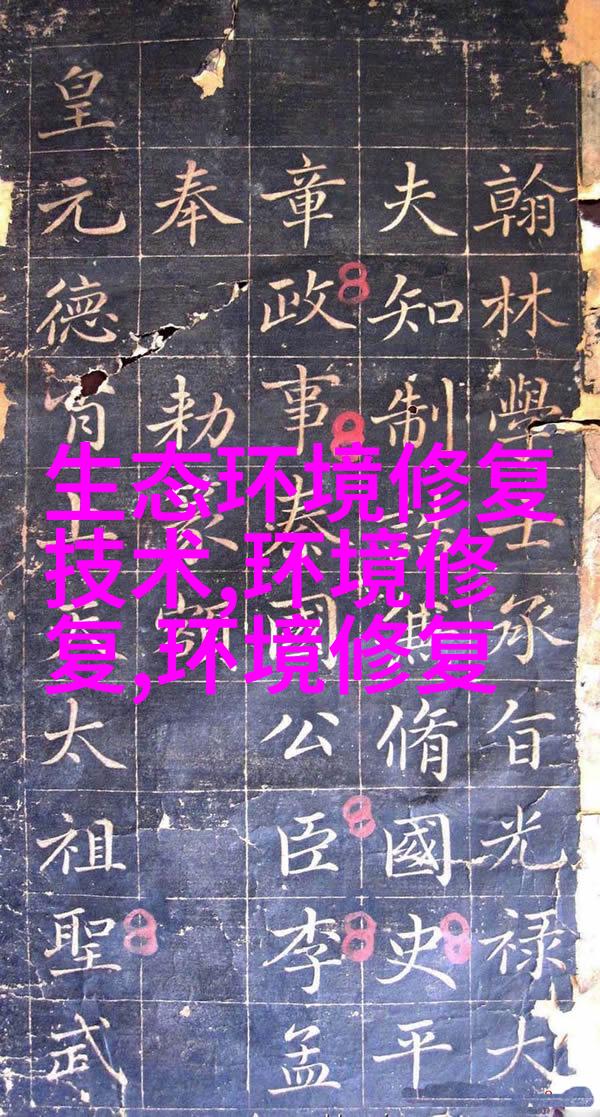 生态环境修复
技术,环境修
复,环境修复
翰林學士承旨光禄大
夫知制誥兼脩國史平
章政事秦國公臣李孟
奉勅篆額
皇元德上太祖聖武